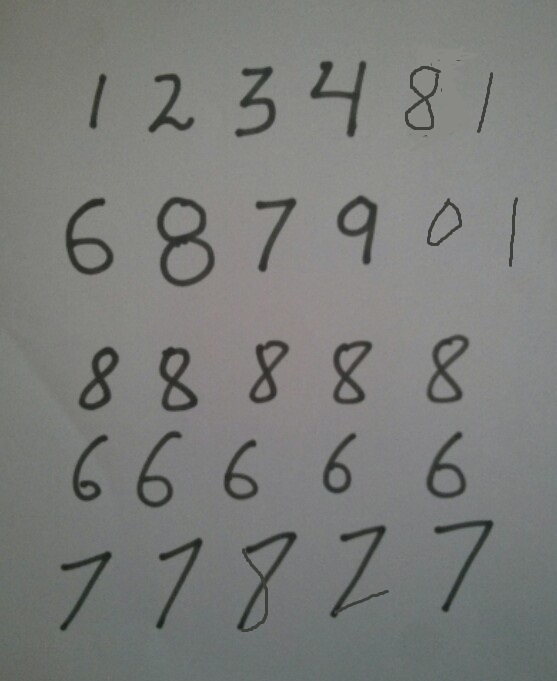 1 2 3 4 8 1
6 8 7 9 0 1
8 8 8 8 8
6 6 6 6 6
7 7 8 2 7